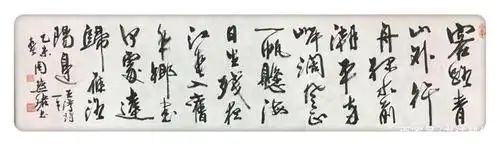 客路青
山外行
舟綠水前
潮平兩
岸闊風正
一帆懸海
日生殘夜
江春入舊
年鄉書
何處達
歸雁洛
陽邊 王灣詩
乙未
周
書